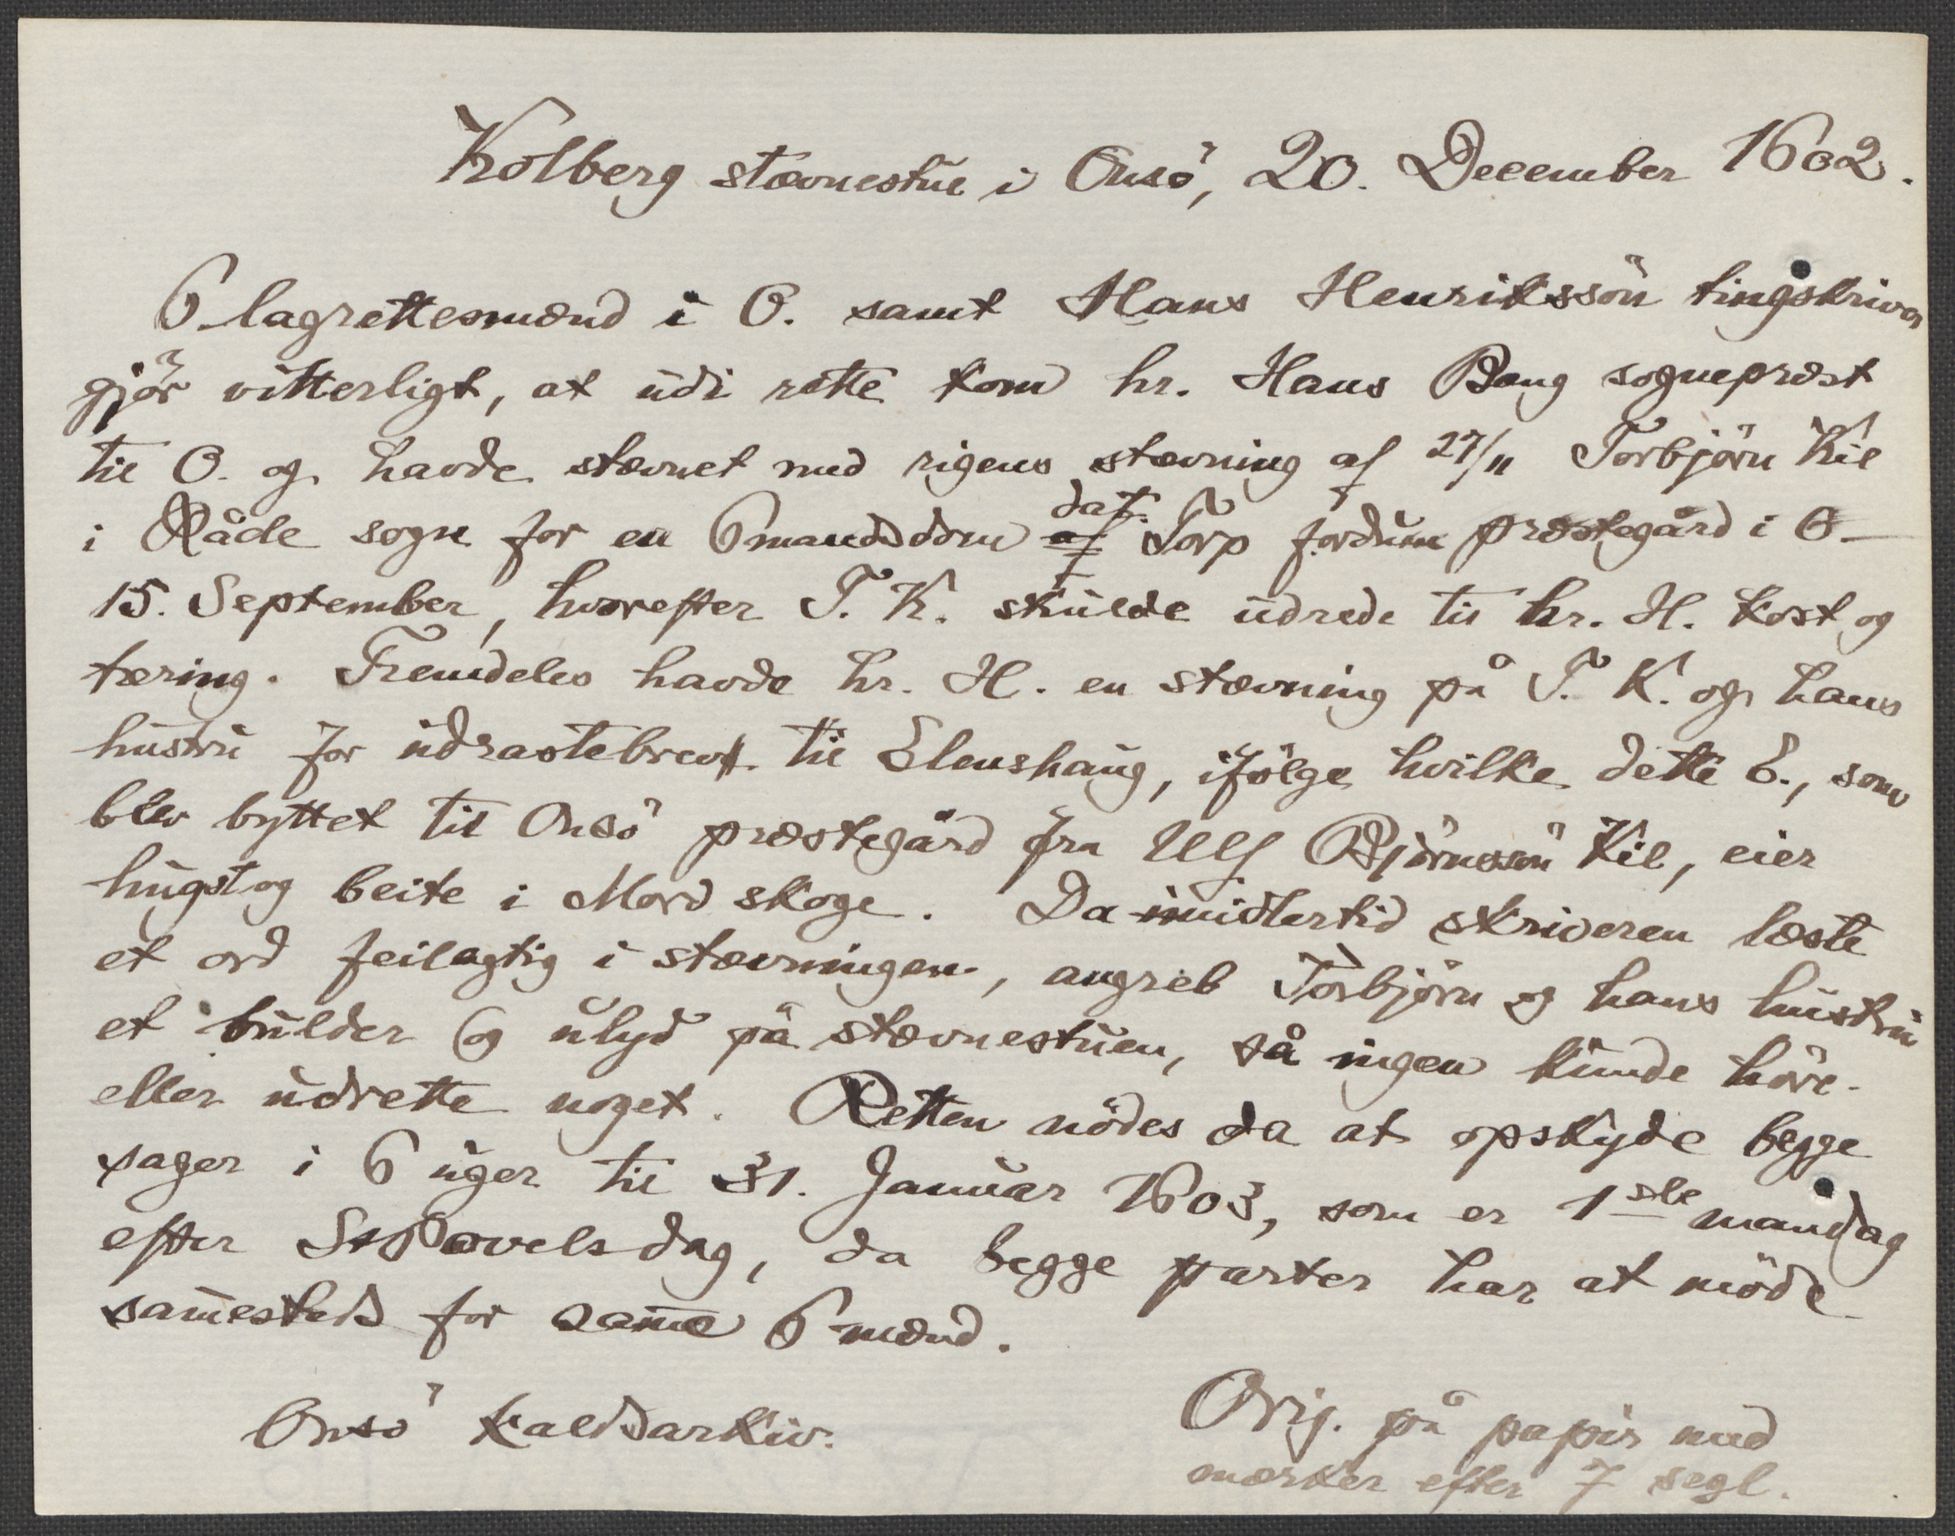 Kolberg stævnestue i Onsö, 20. December 1602.
6 lagrettesmænd i O. samt Hans Henrikssön tingskriver
gjör vitterligt, at udi rette kom hr. Hans Bang sogneprest
til O. og havde stævnet med rigens stævning af 27/11 Torbjörn Kil
i Råde sogn for en 6mandsdom af dat. Torp fordum prestegård i O.
15. September, hvorefter T. K. skulde udrede til hr. H. kost og
tæring. Fremdeles havde hr. H. en stævning på T. K. og hans
hustru for udrastebrev til Elenshaug, ifölge hvilke dette E., som
blev byttet til Onsö præstegård fra Ulf Björnssön Kil, eier
hugst og beite i Mord skoge. Da imidlertid skriveren læste
et ord feilagtig i stævningen, angreb Torbjörn og hans hustru
et bulder og ulyd på stævnestuen, så ingen kunde höre
eller udrette noget. Retten nödes da at opskyde begge
sager i 6 uger til 31. Januar 1603, som er 1ste mandag
efter St Povels dag, da begge parter har at möde
sam̄esteds for sam̄e 6 mænd.
Onsö kaldsarkiv.
Orig. på papir med
mærker efter 7 segl.